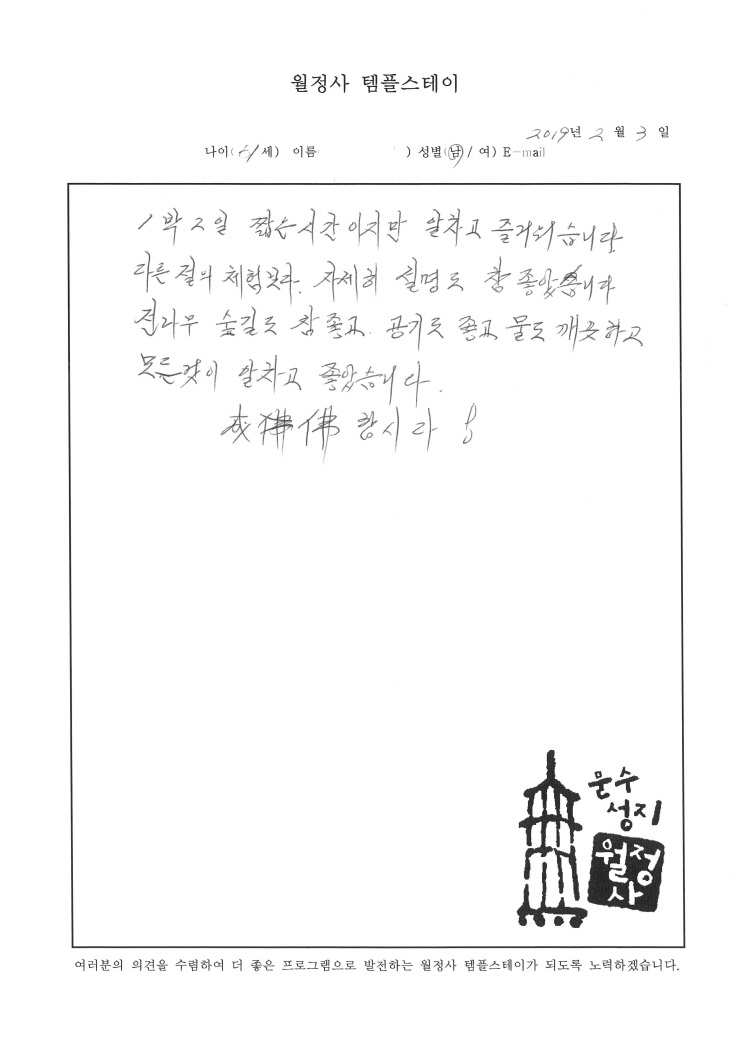 월정사 템플스테이
2019년 2 월 3 일
나이( 세) 이름 ) 성별(남/ 여) E-mail
1박 2일 짧은시간이지만 알차고 즐거워습니다.
다른 절의 체험보다. 자세히 설명도 참 좋았습니다
전나무 숲길도 참 좋고. 공기도 좋고 물도 깨끗하고
모든것이 알차고 좋았습니다.
成 佛 합시라
문수
성지
월정
사
여러분의 의견을 수렴하여 더 좋은 프로그램으로 발전하는 월정사 템플스테이가 되도록 노력하겠습니다.